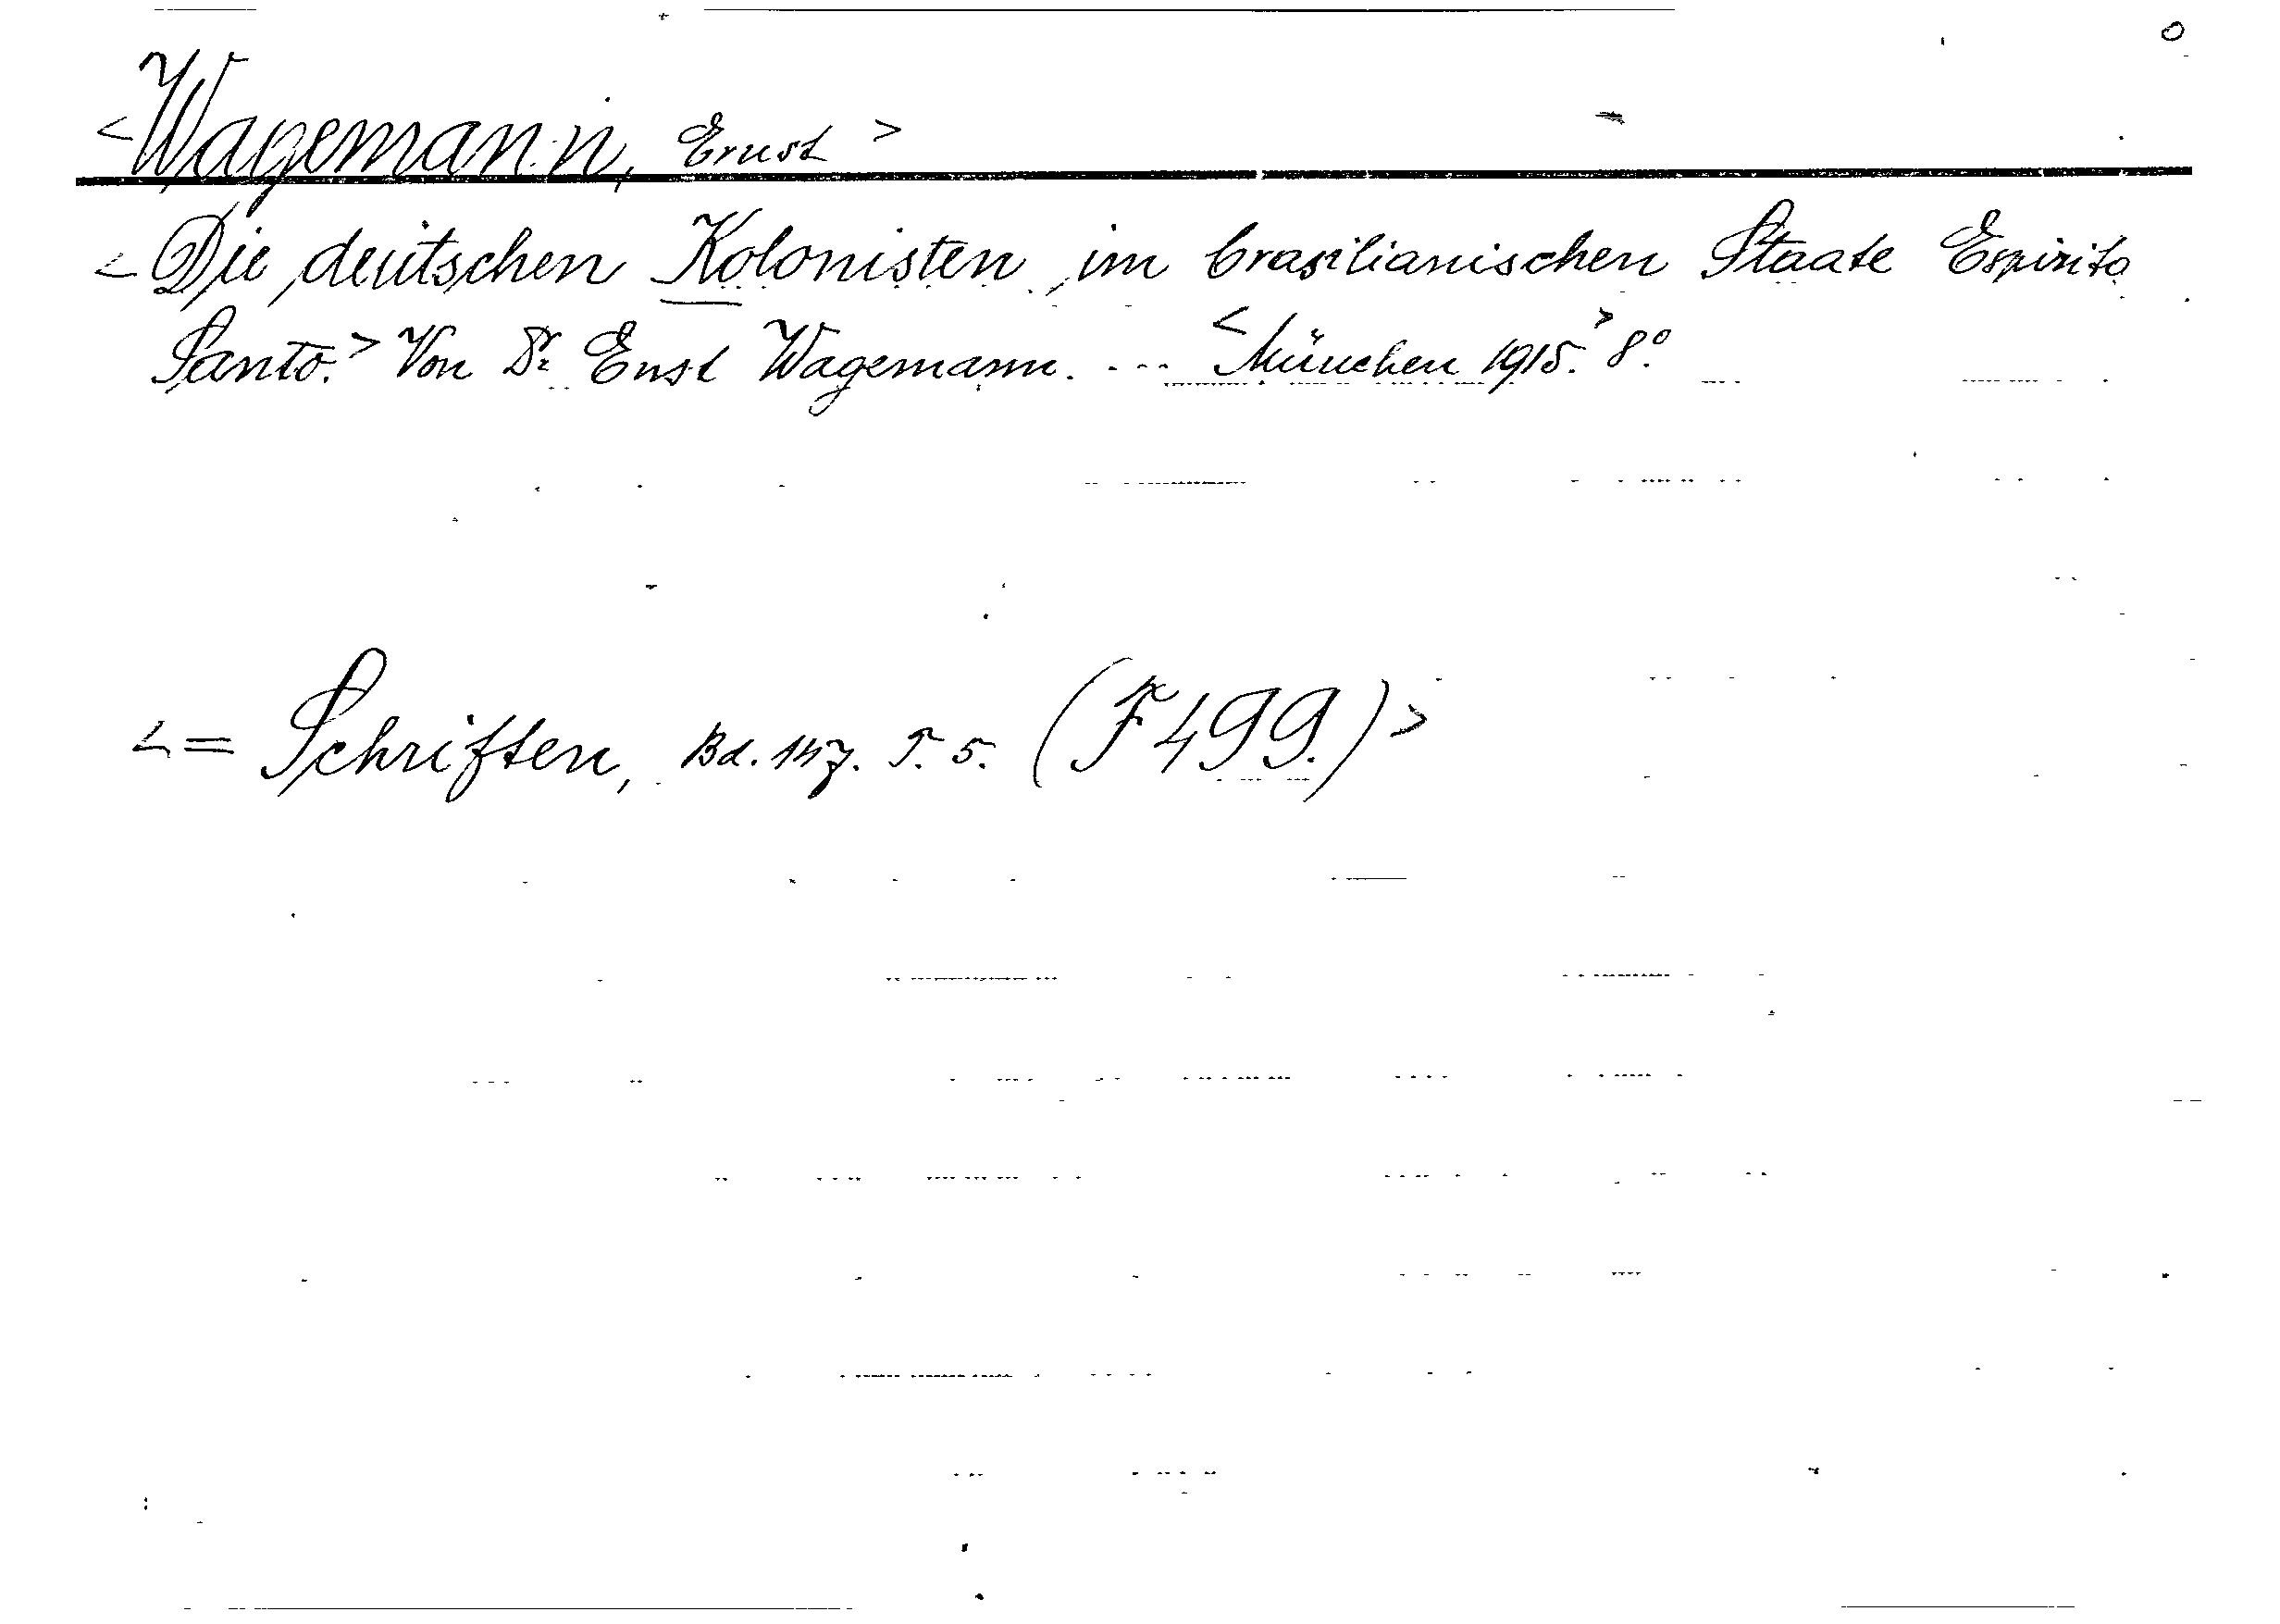 <Wagemann, Ernst>
<Die deutschen Kolonisten im brasilianischen Staate Espirito
Santo.> Von Dr. Ernst Wagemann. ... <München 1915.> 8°.
<= Schriften, Bd. 147. T. 5. (F 499.)>